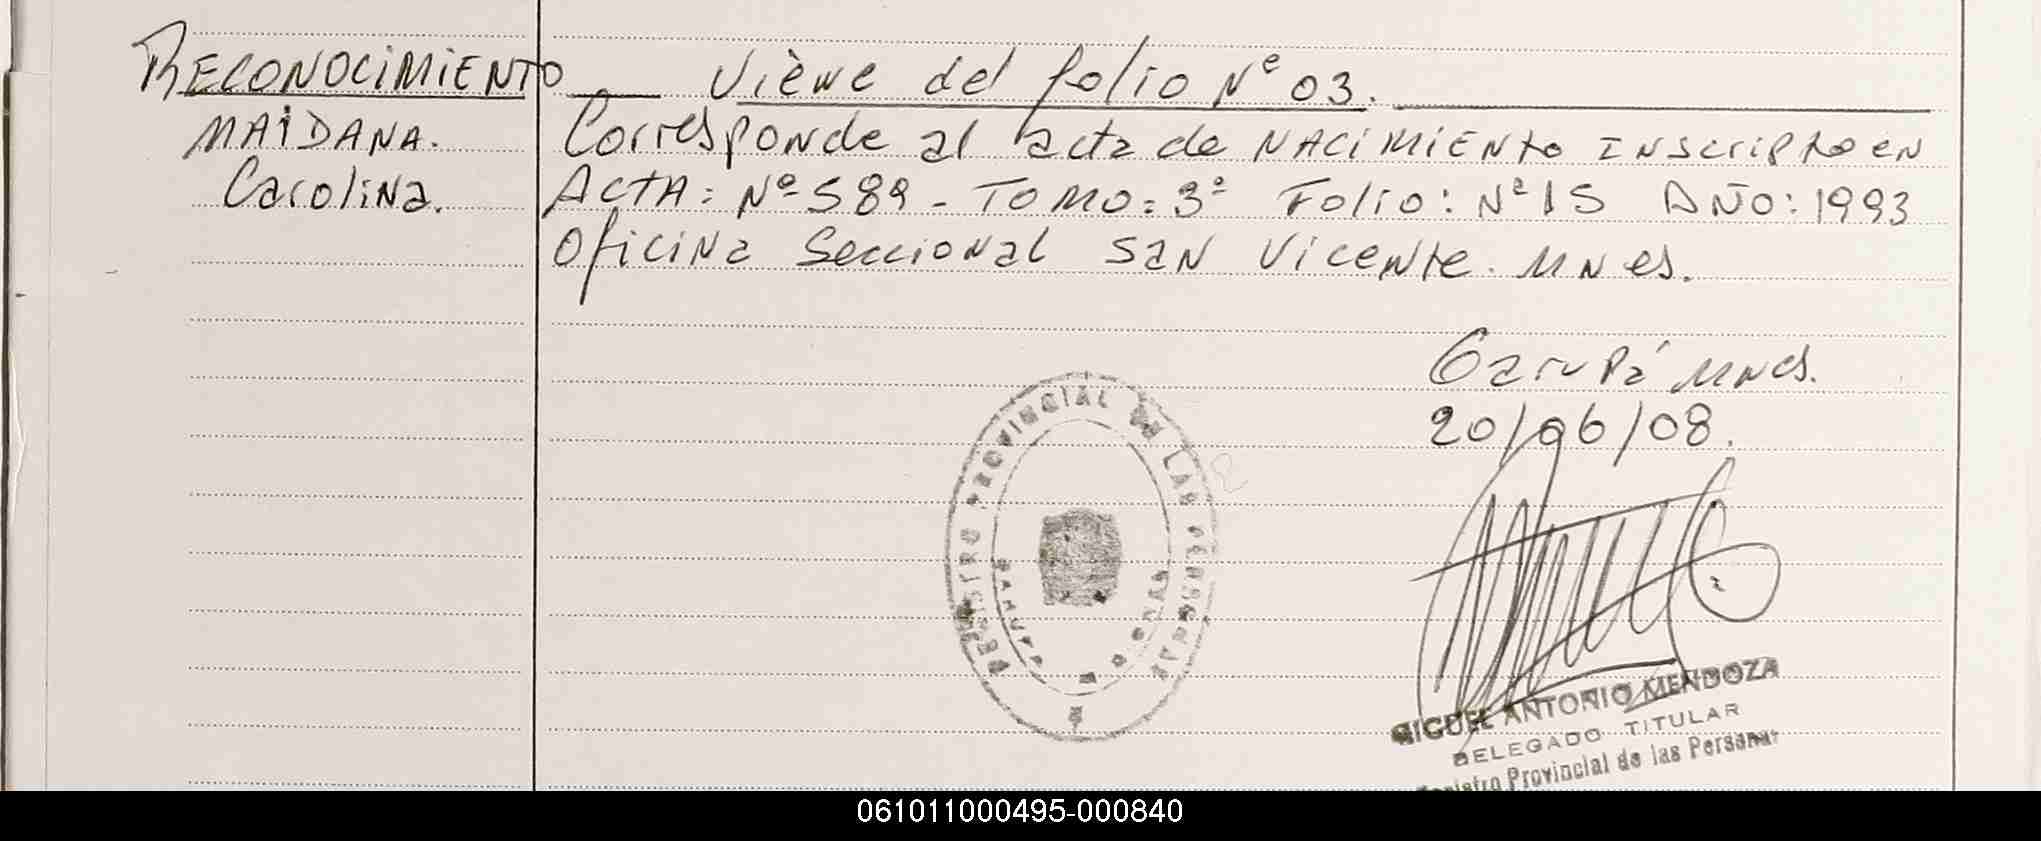 RECONOCIMIENTO
MAIDANA.
Carolina.
Viene del folio Nº 03.
Corresponde al acta de NACIMIENTO INScripto en
ACTA: Nº 589 - TOMO: 3º Folio: Nº 15 AÑO: 1993
Oficina Seccional SAN Vicente. MNes.
Garupá MNes.
20/06/08.
REGISTRO PROVINCIAL DE LAS PERSONAS
GARUPA
MIGUEL ANTONIO MENDOZA
DELEGADO TITULAR
Registro Provincial de las Personas
061011000495-000840